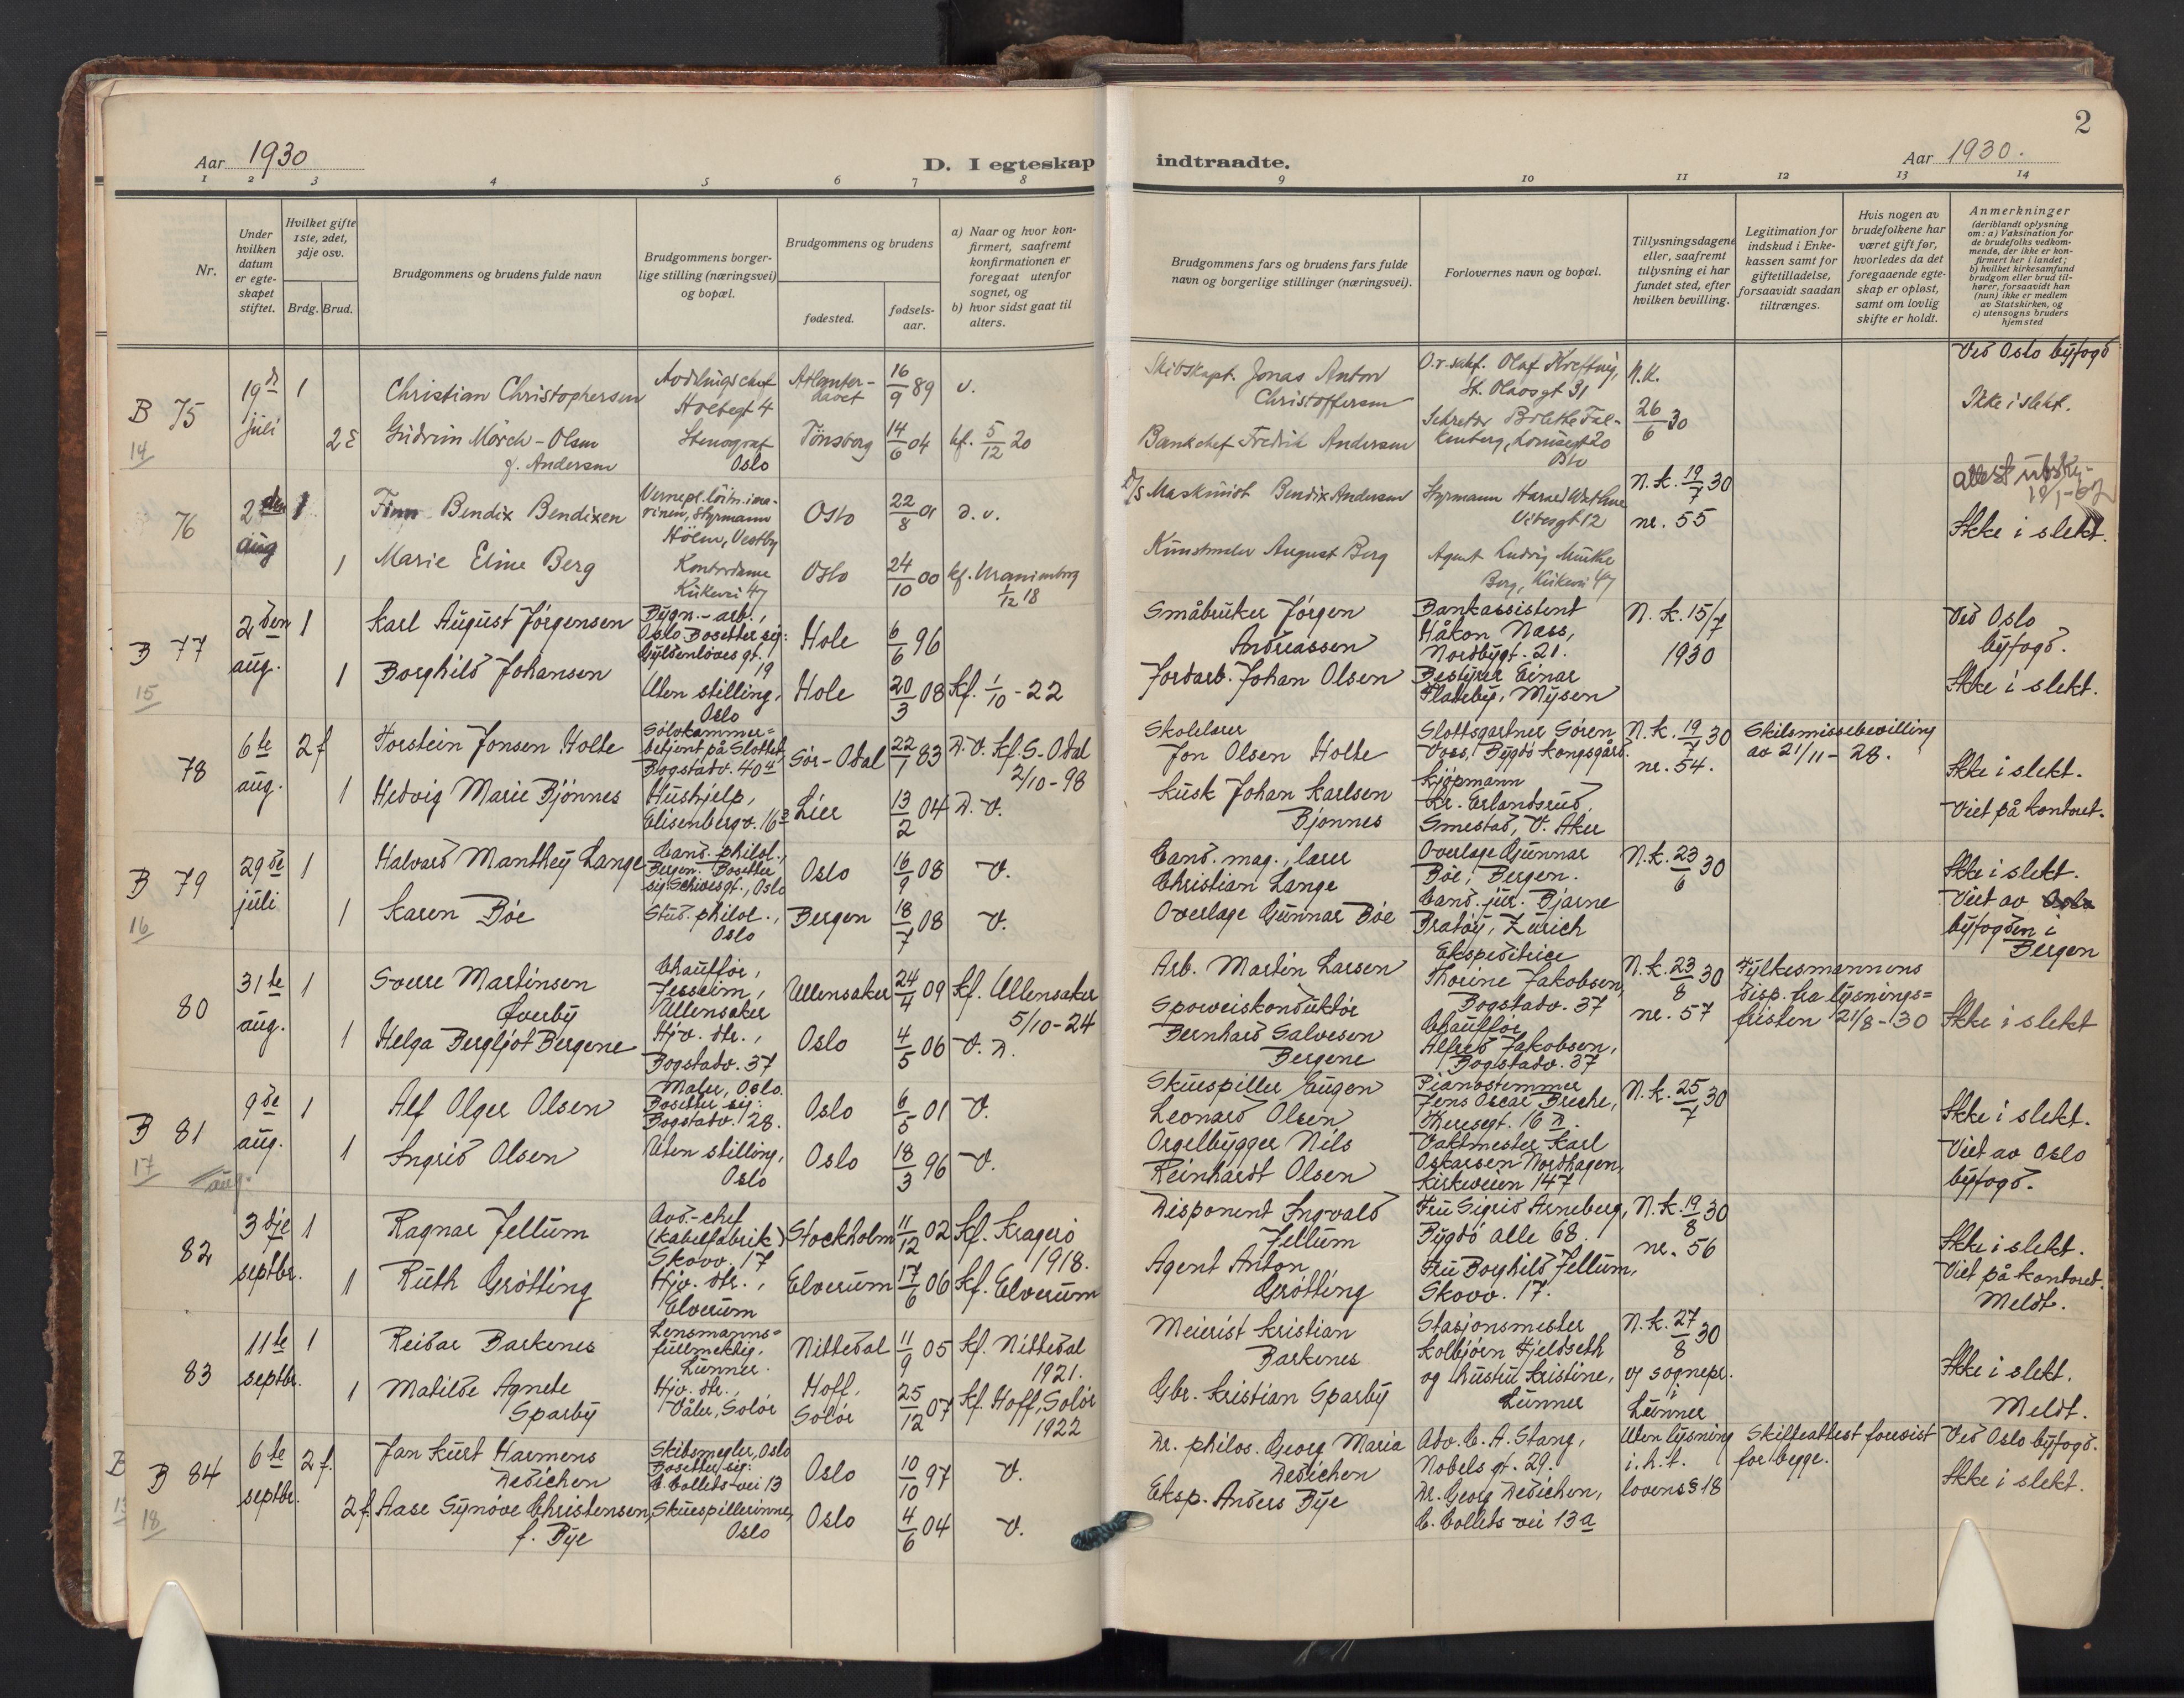 2
Aar 1930
D. I egteskap indtraadte.
Aar 1930.
1 2 3 4 5 6 7 8 9 10 11 12 13 14
Nr.
Under hvilken datum er egteskapet stiftet.
Hvilket gifte 1ste, 2det, 3dje osv.
Brdg. Brud.
Brudgommens og brudens fulde navn
Brudgommens borgerlige stilling (næringsvei) og bopæl.
Brudgommens og brudens
fødested.
fødselsaar.
a) Naar og hvor konfirmert, saafremt konfirmationen er foregaat utenfor sognet, og
b) hvor sidst gaat til alters.
Brudgommens fars og brudens fars fulde navn og borgerlige stillinger (næringsvei).
Forlovernes navn og bopæl.
Tillysningsdagene eller, saafremt tillysning ei har fundet sted, efter hvilken bevilling.
Legitimation for indskud i Enkekassen samt for giftetilladelse, forsaavidt saadan tiltrænges.
Hvis nogen av brudefolkene har været gift før, hvorledes da det foregaaende egteskap er opløst, samt om lovlig skifte er holdt.
Anmerkninger
(deriblandt oplysning om: a) Vaksination for de brudefolks vedkommende, der ikke er konfirmert her i landet;
b) hvilket kirkesamfund brudgom eller brud tilhører, forsaavidt han (hun) ikke er medlem av Statskirken, og
c) utensogns bruders hjemsted
B 75
14
19de juli
1
Christian Christophersen
Avdelingschef
Holbegt 4
Atlanterhavet
16/9 89
v.
Skibskapt. Jonas Anton
Christoffersen
O.r.sakf. Olaf Krefting,
St. Olavsgt 31
N.k.
26/6 30
Ved Oslo byfogd
Ikke i slekt.
2
Gudrun Mörch-Olsen
f. Andersen
Stenograf
Oslo
Tönsberg
14/6 04
kf. 5/12 20
Bankchef Fredrik Andersen
Sekretær Bolethe Falkenberg, Louisesgt 20
Oslo
76
2den aug
1
Finn Bendix Bendixen
Vernepl. löitn. i marinen, Styrmann
Hölen, Vestby
Oslo
22/8 01
D.v.
D/S Maskinist Bendix Andersen
Styrmann
Vibesgt 12
N.k. 19/7 30
nr. 55
Ikke i slekt.
1
Marie Eline Berg
Kontordame
Kirkevei 47
Oslo
24/10 00
kf. Uranienborg
1/12 18
Kunstmaler August Berg
Agent Ludvig Munthe
Berg, Kirkevei 47
B 77
15
2den aug.
1
Karl August Jörgensen
Bygn.-arb.,
Oslo Bosetter sig:
Gyldenløves gt.
19
Hole
6/6 96
Småbruker Jörgen
Andreassen
Bankassistent
Håkon Næss,
Nordbygt. 21.
N.k. 15/7
1930
Ved Oslo
byfogd.
Ikke i slekt.
1
Borghild Johansen
Uten stilling,
Oslo
Hole
20/3 08
Kf. 1/10-22
Jordarb. Johan Olsen
Bestyrer Einar
Flateby, Mysen
78
6te aug.
2 f
Torstein Jonsen Holte
Sølvkammerbetjent på Slottet,
Bogstadv. 40
Sør-Odal
22/1 83
D.V. Kf. S-Odal
2/10-98
Skolelærer
Jon Olsen Holte
Slottsgartner Søren
Voss, Bygdø kongsgård.
N.k. 19/7 30
nr. 54.
Skilsmissebevilling
av 21/11-28.
Ikke i slekt.
Viet på kontoret.
1
Hedvig Marie Bjönnes
Hushjelp,
Elisenbergv. 16
Lier
13/2 04
D.V.
Kusk Johan Karlsen
Bjønnes
Kjøpmann
Kr. Erlandsrud,
Smestad, V. Aker
B 79
16
29de juli
1
Halvard Manthey Lange
Cand. philol.,
Bergen. Bosetter
sig Schivesgt., Oslo
Oslo
16/9 08
V.
Cand. mag., lærer
Christian Lange
Overlæge Gunnar
Bøe, Bergen.
N.k. 23/6 30
Ikke i slekt.
Viet av
byfogden i
Bergen
1
Karen Bøe
Stud. philol.,
Oslo
Bergen
18/7 08
V.
Overlæge Gunnar Bøe
Cand. jur. Bjarne
Bratøy, Zürich
80
31te aug.
1
Sverre Martinsen
Øverby
Chauffør,
Jessheim,
Ullensaker
Ullensaker
24/4 09
Kf. Ullensaker
5/10-24
Arb. Martin Larsen
Ekspeditrice
Thorine Jakobsen,
Bogstadv. 37
N.k. 23/8 30
nr. 57
Fylkesmannens
disp. fra lysningsfristen 21/8-30
Ikke i slekt
1
Helga Bergljot Bergene
Hjv. dtr.,
Bogstadv. 37
Oslo
4/5 06
V.D.
Sporveiskonduktør
Bernhard Salvesen
Bergene
Chauffør
Alfred Jakobsen,
Bogstadv. 37
B 81
17
9de aug.
aug.
1
Alf Olger Olsen
Maler, Oslo.
Bosetter sig:
Bogstadv. 28.
Oslo
6/5 01
V.
Skuespiller Eugen
Leonard Olsen
Pianostemmer
Jens Oscar Breche,
Theresegt. 16 D.
N.k. 25/7 30
Ikke i slekt.
Viet av Oslo
byfogd.
1
Ingrid Olsen
Uten stilling,
Oslo
Oslo
18/3 96
V.
Orgelbygger Nils
Reinhardt Olsen
Vaktmester Karl
Oskarsen Nordhagen,
Kirkeveien 147
82
3dje septbr.
1
Ragnar Jellum
Avd.-chef
(kabelfabrik)
Skovv. 17
Stockholm
11/12 02
Kf. Kragerö
1918.
Disponent Ingvald
Jellum
Fru Sigrid Arneberg,
Bygdø alle 68.
N.k. 19/8 30
nr. 56
Ikke i slekt.
Viet på kontoret.
Meldt.
1
Ruth Grøtting
Hjv. dtr.,
Elverum
Elverum
17/6 06
Kf. Elverum
Agent Anton
Grøtting
Fru Borghild Jellum,
Skovv. 17.
83
11te septbr.
1
Reidar Barkenes
Lensmannsfullmektig,
Lunner.
Nittedal
11/9 05
Kf. Nittedal
1921.
Meierist Kristian
Barkenes
Stasjonsmester
Kolbjørn Fjeldseth
N.k. 27/8 30
Ikke i slekt.
Meldt.
1
Matilde Agnete
Sparby
Hjv. dtr.,
Våler, Solør
Hoff,
Solør
25/12 07
Kf. Hoff, Solør
1922
Gbr. Kristian Sparby
og hustru Kristine,
Lunner
og sognepr.
i
Lunner
B
B 84
18
6te septbr.
2 f.
Jan Kurt Harmens
Dedichen
Skibsmegler, Oslo
Bosetter sig:
C. Collets-vei 13
Oslo
10/10 97
V.
Dr. philos. Georg Maria
Dedichen
Adv. C. A. Stang,
Nobels gt. 29.
Uten lysning
i.h.t.
lovens § 18
Skifteattest forevist
for begge.
Ved Oslo byfogd.
Ikke i slekt.
2 f.
Aase Synöve Christensen,
f. Bye
Skuespillerinne,
Oslo
Oslo
4/6 04
V.
Eksp. Anders Bye
Dr. Georg Dedichen,
C. Collets vei 13 a